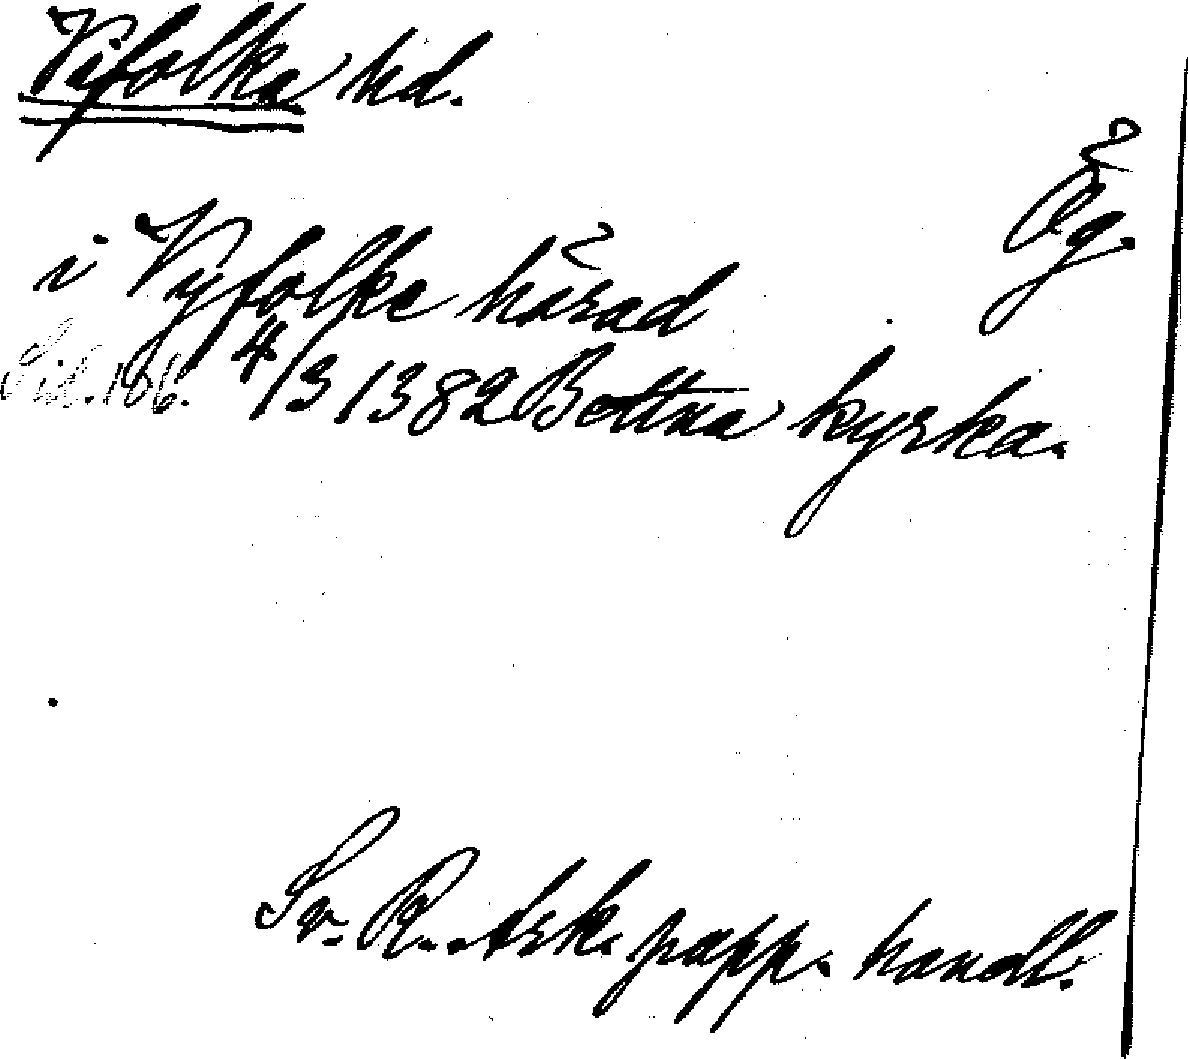 Vifolka hd.
Ög.
i Vyfolke härad
Sil. 166. 4/3 1382 Bettna kyrka.
Sv. R. Ark. papp. handl.